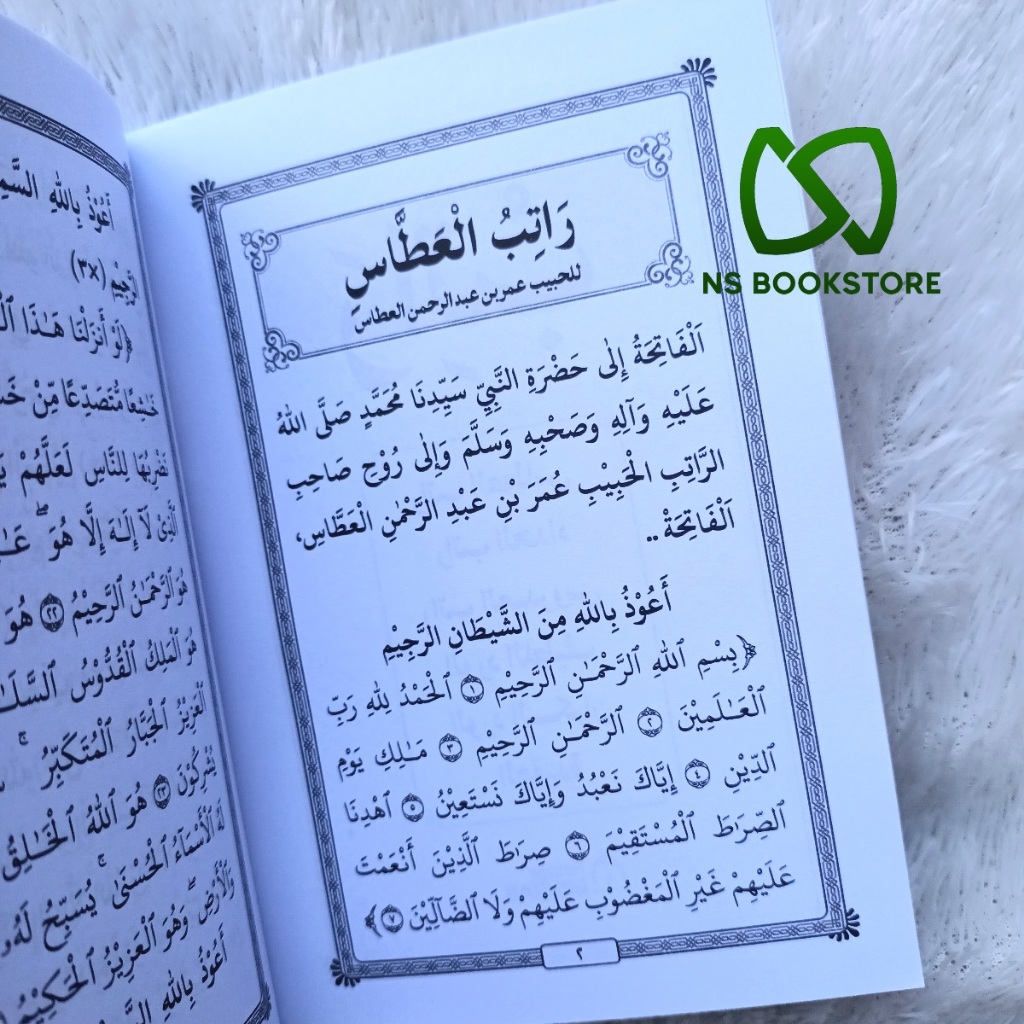 رَاتِبُ الْعَطَّاسِ
للحبيب عمر بن عبد الرحمن العطاس
اَلْفَاتِحَةُ إِلٰى حَضْرَةِ النَّبِيِّ سَيِّدِنَا مُحَمَّدٍ صَلَّى اللهُ
عَلَيْهِ وَآلِهِ وَصَحْبِهِ وَسَلَّمَ وَإِلٰى رُوْحِ صَاحِبِ
الرَّاتِبِ الْحَبِيْبِ عُمَرَ بْنِ عَبْدِ الرَّحْمٰنِ الْعَطَّاسِ،
اَلْفَاتِحَةْ..
أَعُوْذُ بِاللهِ مِنَ الشَّيْطَانِ الرَّجِيْمِ
﴿بِسْمِ ٱللهِ ٱلرَّحْمَـٰنِ ٱلرَّحِيْمِ ١ ٱلْحَمْدُ لِلهِ رَبِّ
ٱلْعَـٰلَمِيْنَ ٢ ٱلرَّحْمَـٰنِ ٱلرَّحِيْمِ ٣ مَـٰلِكِ يَوْمِ
ٱلدِّيْنِ ٤ إِيَّاكَ نَعْبُدُ وَإِيَّاكَ نَسْتَعِيْنُ ٥ ٱهْدِنَا
ٱلصِّرَاطَ ٱلْمُسْتَقِيْمَ ٦ صِرَاطَ ٱلَّذِيْنَ أَنْعَمْتَ
عَلَيْهِمْ غَيْرِ ٱلْمَغْضُوْبِ عَلَيْهِمْ وَلَا ٱلضَّآلِّيْنَ ٧﴾
٢
أَعُوْذُ بِاللهِ
(٣×)
﴿لَوْ أَنْزَلْنَا هَـٰذَا
خَـٰشِعًا مُّتَصَدِّعًا مِّنْ
نَضْرِبُهَا لِلنَّاسِ لَعَلَّهُمْ
ٱلَّذِيْ لَآ إِلَـٰهَ إِلَّا هُوَ ۖ
هُوَ ٱلرَّحْمَـٰنُ ٱلرَّحِيْمُ ٢٢ هُوَ
هُوَ ٱلْمَلِكُ ٱلْقُدُّوْسُ
ٱلْعَزِيْزُ ٱلْجَبَّارُ ٱلْمُتَكَبِّرُ ۚ
يُشْرِكُوْنَ ٢٣ هُوَ ٱللهُ ٱلْخَـٰلِقُ
لَهُ ٱلْأَسْمَآءُ ٱلْحُسْنَىٰ ۚ يُسَبِّحُ لَهُ
وَٱلْأَرْضِ ۖ وَهُوَ ٱلْعَزِيْزُ ٱلْحَكِيْمُ
أَعُوْذُ بِاللهِ
NS BOOKSTORE